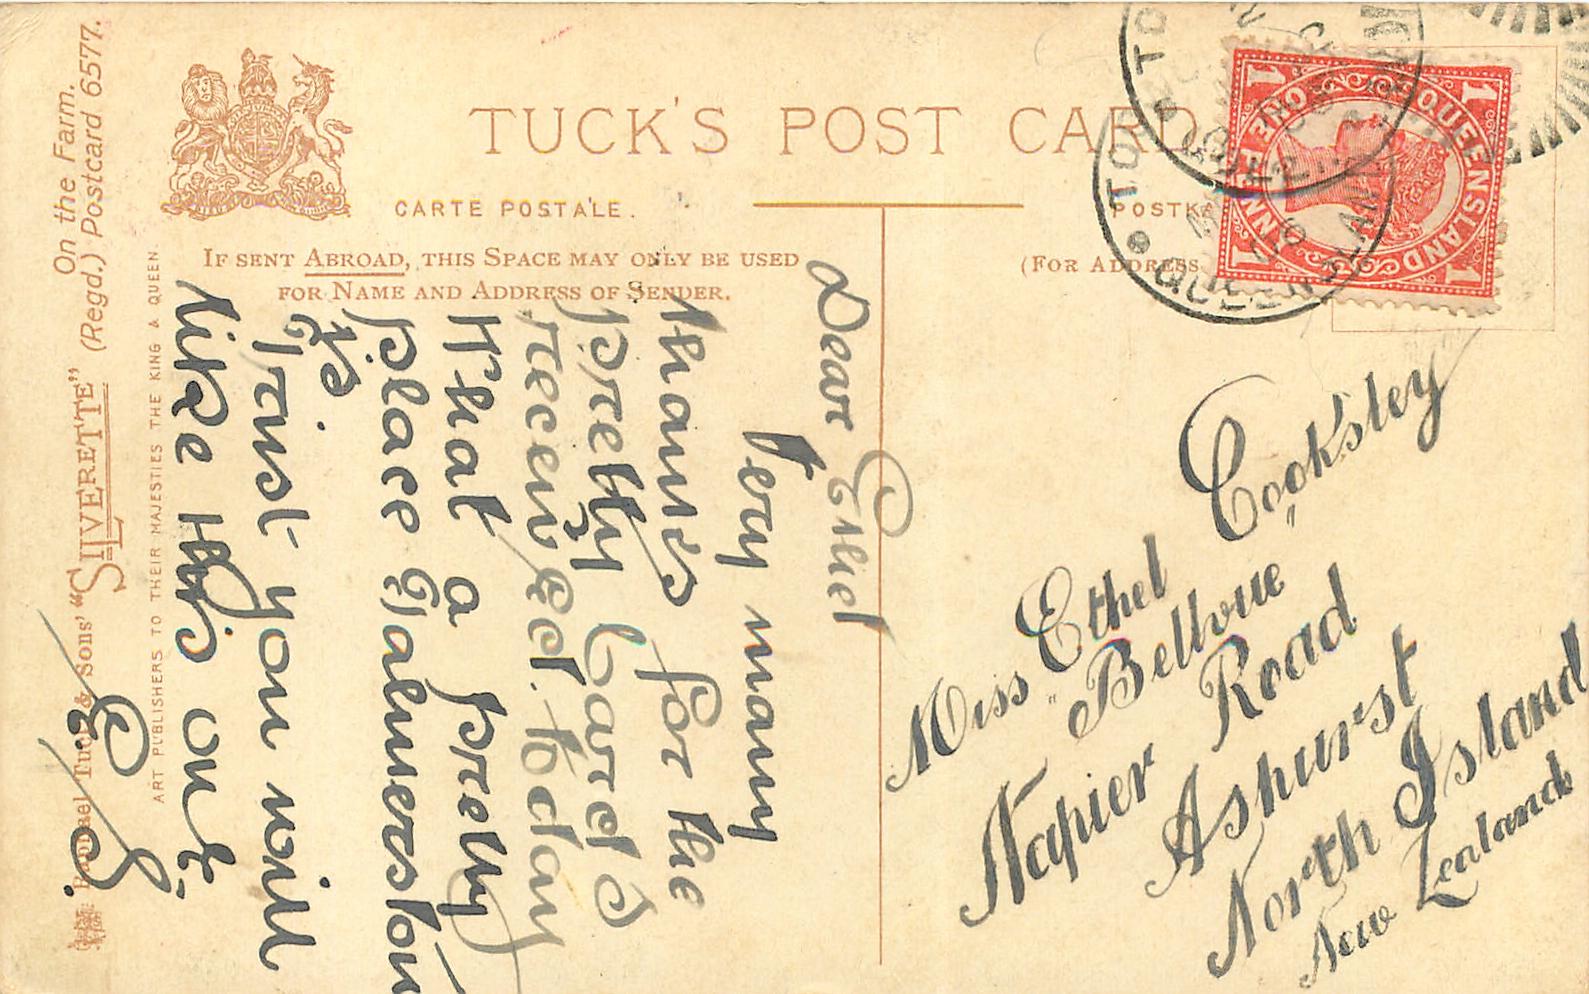 TUCK'S POST CARD
CARTE POSTALE.
IF SENT ABROAD, THIS SPACE MAY ONLY BE USED
FOR NAME AND ADDRESS OF SENDER.
(FOR ADDRESS
Dear Ethel
Very many
thanks for the
pretty Cards
received today
What a pretty
place Palmerston
is
Trust you will
like this one
Miss Ethel Cooksley
"Bellvue"
Napier Road
Ashurst
North Island
New Zealand
QUEENSLAND
ONE PENNY
1
1
1
1
QUEENSLAND
Raphael Tuck & Sons' "SILVERETTE" (Regd.) Postcard 6577.
On the Farm.
ART PUBLISHERS TO THEIR MAJESTIES THE KING & QUEEN.